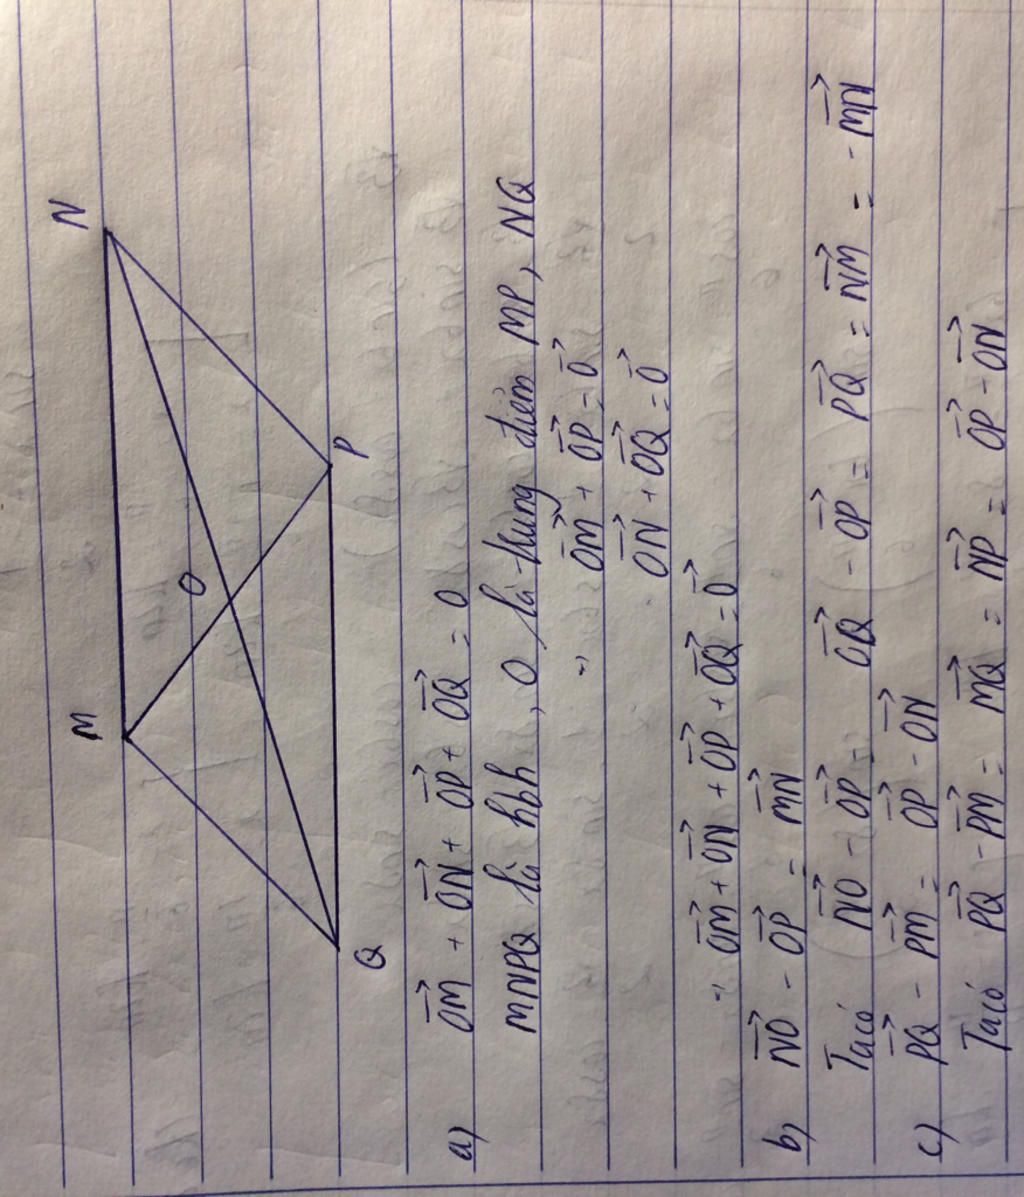 M N
O
Q P
a) OM→ + ON→ + OP→ + OQ→ = 0
MNPQ là hbh, O là trung điểm MP, NQ
∵ OM→ + OP→ = 0→
ON→ + OQ→ = 0→
∵ OM→ + ON→ + OP→ + OQ→ = 0→
b) NO→ - OP→ = MN→
Ta có NO→ - OP→ = OQ→ - OP→ = PQ→ = NM→ = - MN→
c) PQ→ - PM→ = OP→ - ON→
Ta có PQ→ - PM→ = MQ→ = NP→ = OP→ - ON→